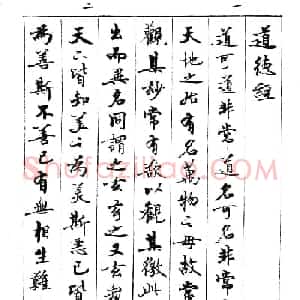 道德經
道可道非常道名可名非常
天地之始有名萬物之母故常
觀其妙常有欲以觀其徼此
出而異名同謂之玄玄之又玄
天下皆知美之為美斯惡已皆
為善斯不善已有無相生難
一
二